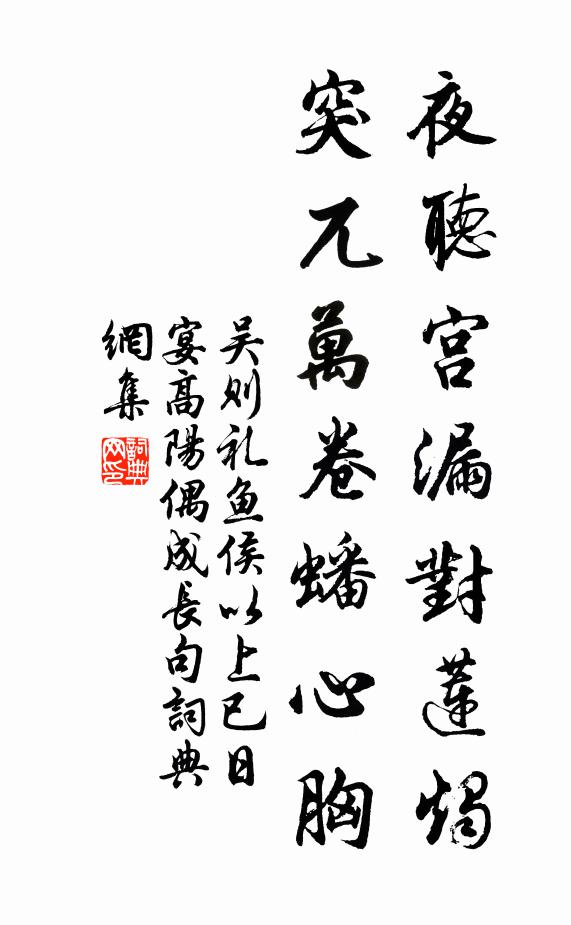 夜聽宫漏對蓮燭
突兀萬卷蟠心胸
吴则礼鱼侯以上巳日
宴高陽偶成長句詞典
網集
詞典
网印